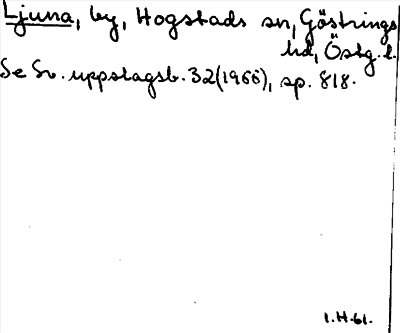 Ljuna, by, Hogstads sn, Göstrings
hd, Östg. l.
Se Sv. uppslagsb. 32 (1966), sp. 818.
1.H.61.